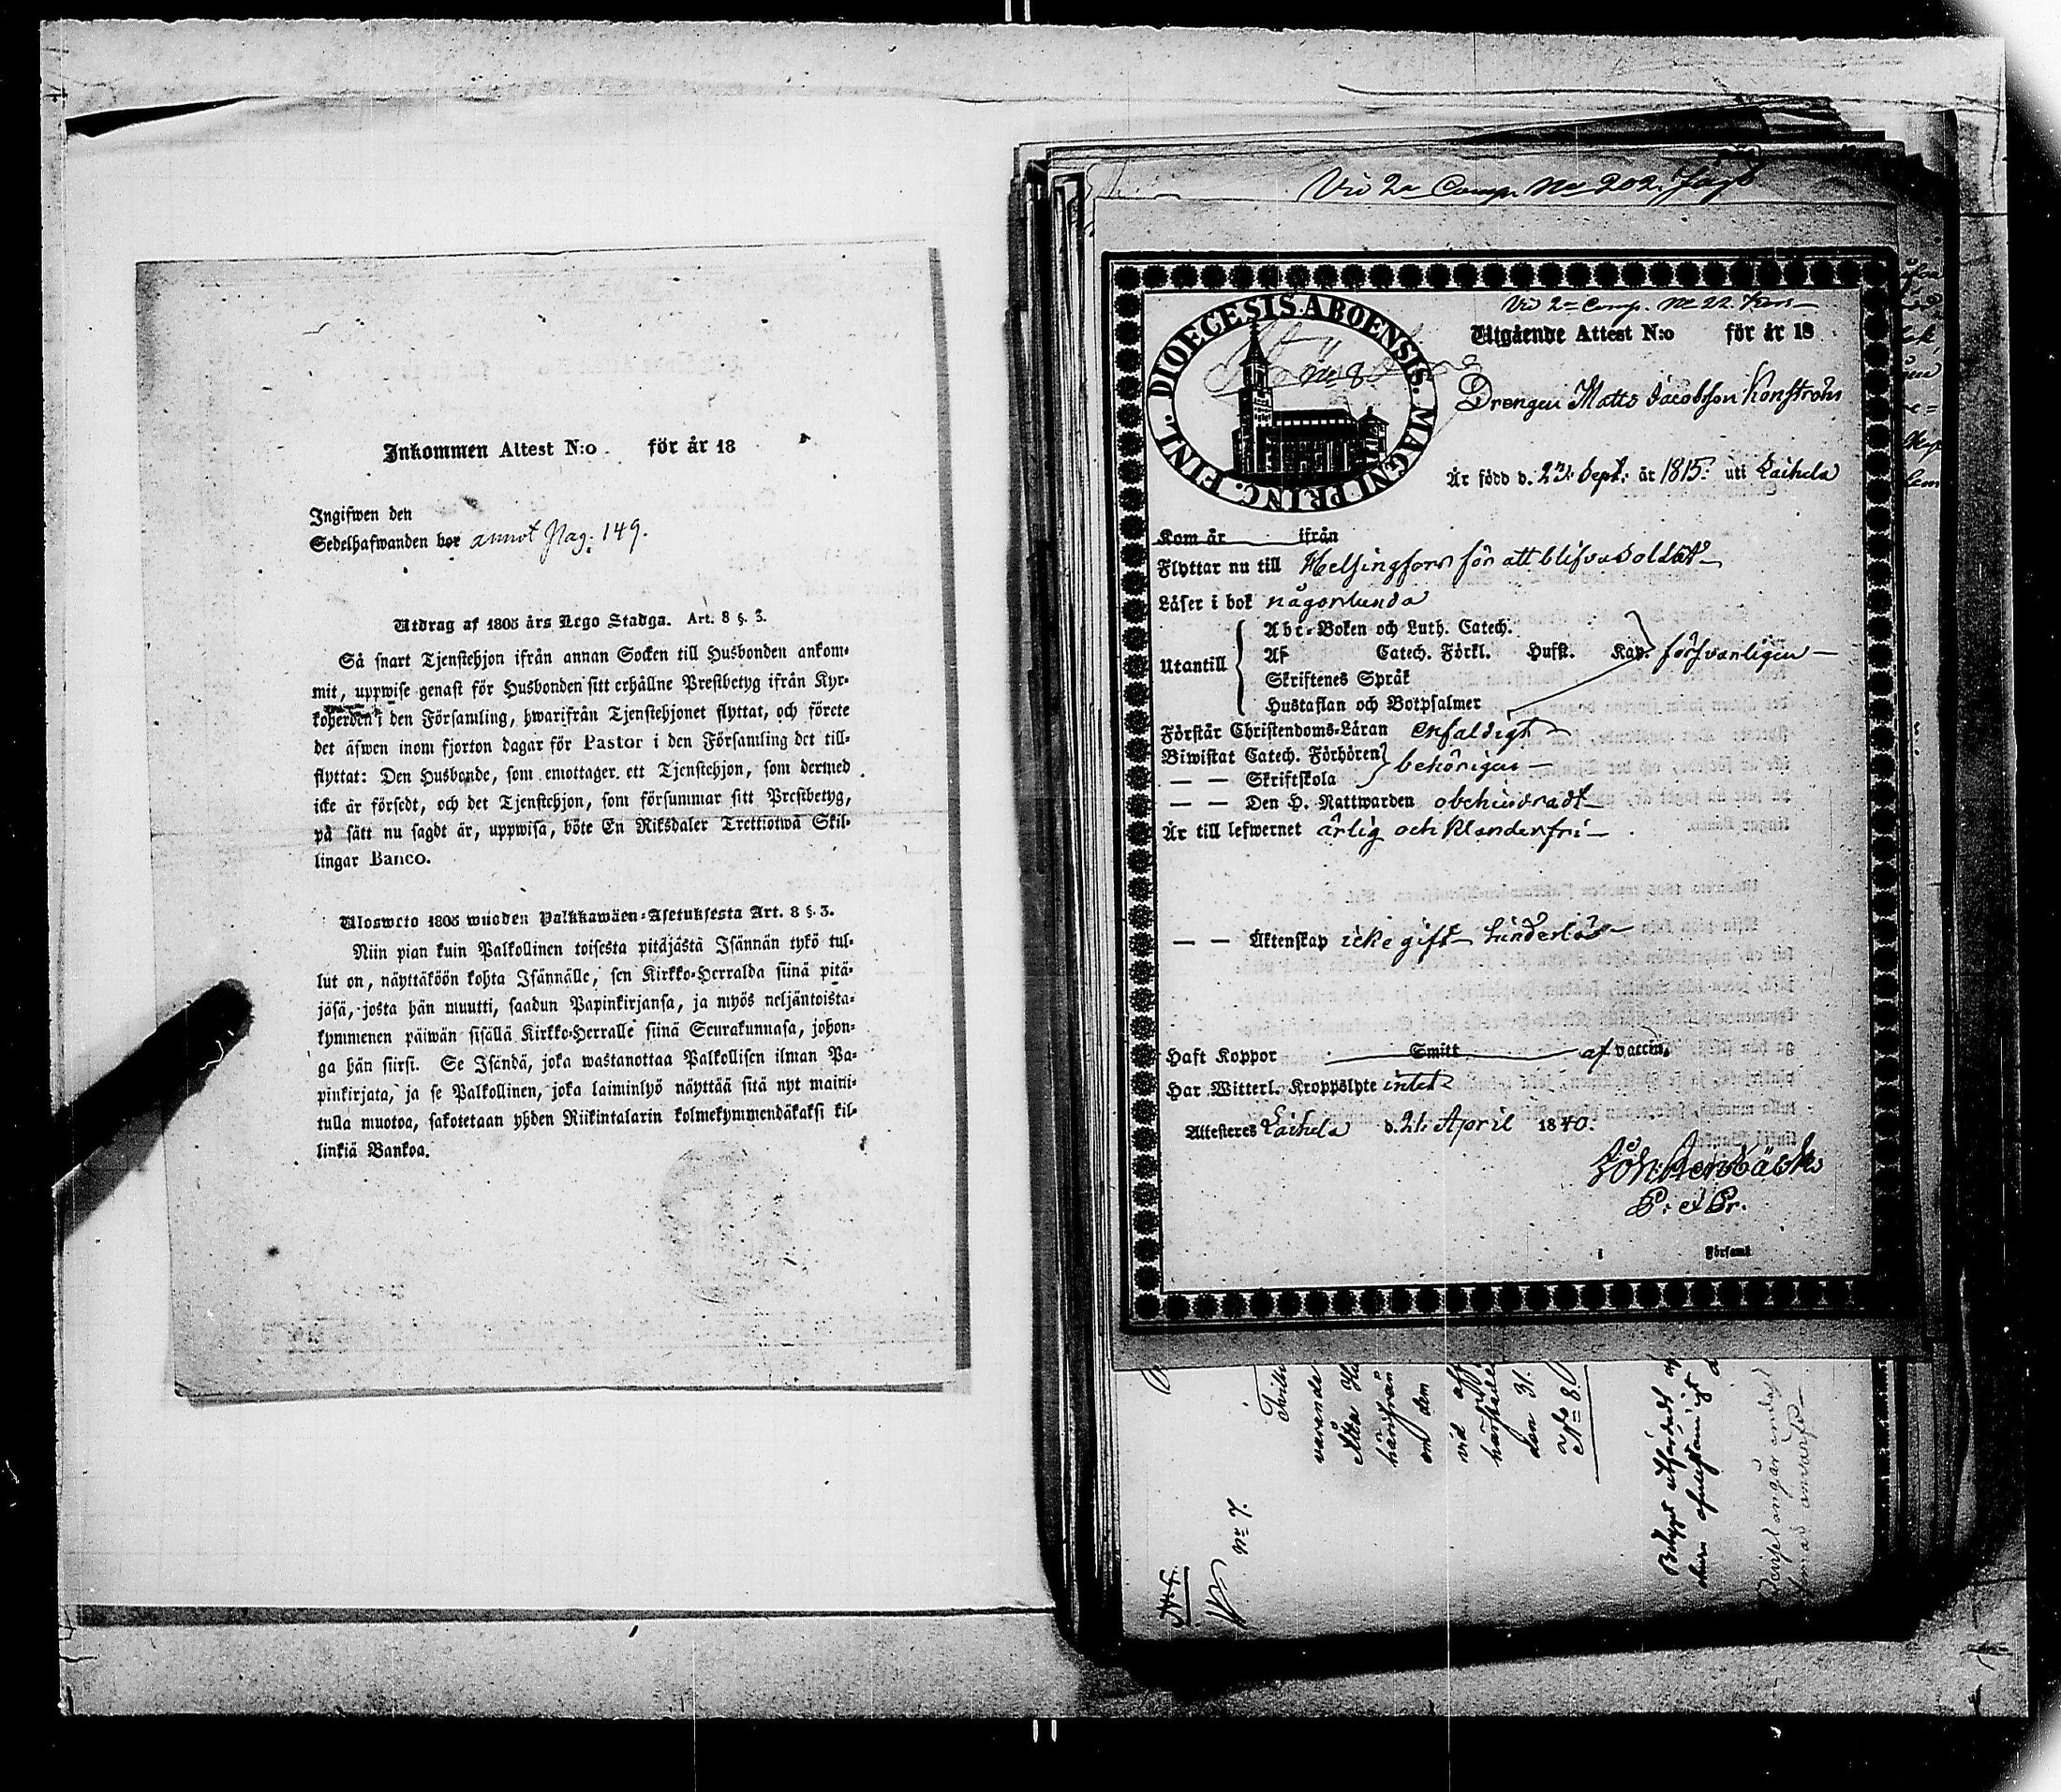 Inkommen Attest N:o för år 18
Ingifwen den
Sedelhafwanden bor annot Pag. 149.
Utdrag af 1805 års Lego Stadga. Art. 8 §. 3.
Så snart Tjenstehjon ifrån annan Socken till Husbonden ankom-
mit, uppwise genast för Husbonden sitt erhållne Prestbetyg ifrån Kyr-
koherden i den Församling, hwarifrån Tjenstehjonet flyttat, och förete
det äfwen inom fjorton dagar för Pastor i den Församling det till-
flyttat: Den Husbonde, som emottager ett Tjenstehjon, som dermed
icke är försedt, och det Tjenstehjon, som försummar sitt Prestbetyg,
på sätt nu sagdt är, uppwisa, böte En Riksdaler Trettiotwå Skil-
lingar Banco.
Uloswcto 1805 wuoden Palkkawäen-Asetuksesta Art. 8 §. 3.
Niin pian kuin Palkollinen toisesta pitäjästä Isännän tykö tul-
lut on, näyttäköön kohta Isännälle, sen Kirkko-Herralda siinä pitä-
jäsä, josta hän muutti, saadun Papinkirjansa, ja myös neljäntoista-
kymmenen päiwän sisällä Kirkko-Herralle siinä Seurakunnasa, johon-
ga hän siirsi. Se Isändä, joka wastanottaa Palkollisen ilman Pa-
pinkirjata, ja se Palkollinen, joka laiminlyö näyttää sitä nyt maini-
tulla muotoa, sakotetaan yhden Riikintalarin kolmekymmendäkaksi kil-
linkiä Bankoa.
Vid 2a Comp. No 202.
Vid 2a Comp. No 22.
DIOECESIS ABOENSIS. MAGNI PRINC. FINL.
No 8
Utgående Attest N:o för år 18
Drengen Matts Jacobsson Konstrohs
Är född d. 23. Sept. år 1815. uti Laihela
Kom år ifrån
Flyttar nu till Helsingfors för att blifva soldat
Läser i bok någorlunda
Utantill
Abc-Boken och Luth. Catech.
Af Catech. Förkl. Husst. Kap. försvarligen
Skriftenes Språk
Hustaflan och Botpsalmer
Förstår Christendoms-Läran enfaldigt
Biwistat Catech. Förhören
— — Skriftskola behörigen
— — Den H. Nattwarden obehindradt
Är till lefwernet ärlig och klanderfri
— — Äktenskap icke gift hinderlös
Haft Koppor Smitt af vaccin.
Har Witterl. Kroppslyte intet
Attesteres Laihela d. 21. April 1840.
P. et Pr.
i Församl
varande
Åtta
härifrån
om dem
vid
den 31.
No 8
No 7.